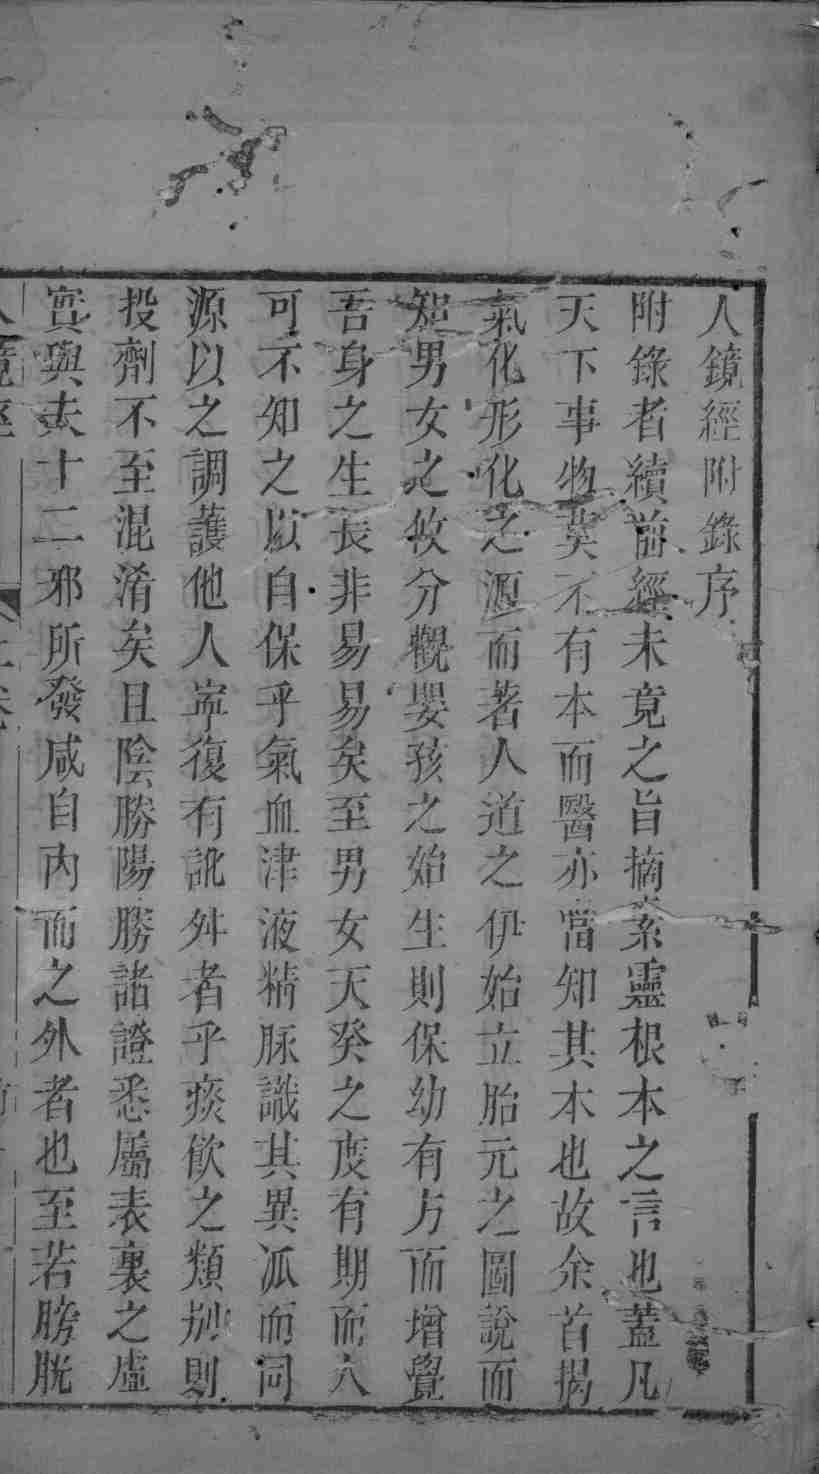 人鏡經附錄序
附錄者續前經未竟之旨摘素靈根本之言也蓋凡
天下事物莫不有本而醫亦當知其本也故余首揭
氣化形化之源而著人道之伊始立胎元之圖說而
知男女之攸分觀嬰孩之始生則保幼有方而增覺
吾身之生長非易易矣至男女天癸之度有期而人
可不知之以自保乎氣血津液精脉識其異派而同
源以之調護他人寧復有訛舛者乎痰飲之類別則
投劑不至混淆矣且陰勝陽勝諸證悉屬表裏之虛
實與夫十二邪所發咸自內而之外者也至若膀胱
人鏡經